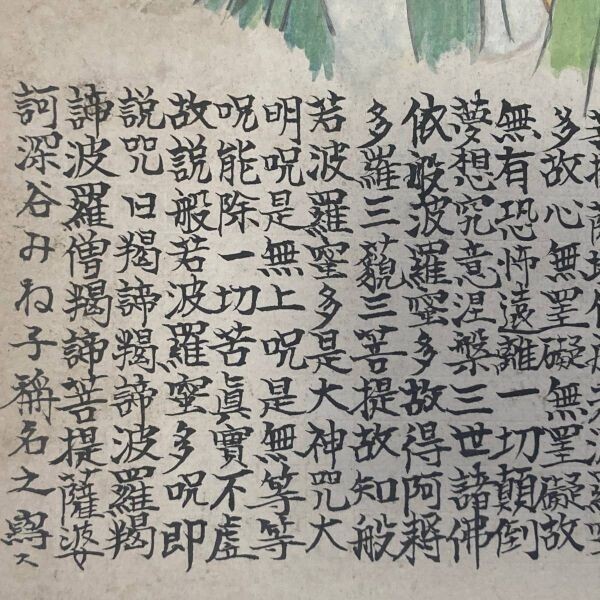 多故心無罣礙無罣礙故
無有恐怖遠離一切顛倒
夢想究意涅槃三世諸佛
依般波羅蜜多故得阿耨
多羅三藐三菩提故知般
若波羅蜜多是大神咒大
明呪是無上呪是無等等
呪能除一切苦眞實不虛
故説般若波羅蜜多呪即
説咒曰羯諦羯諦波羅羯
諦波羅僧羯諦菩提薩婆
訶深谷みね子稱名之